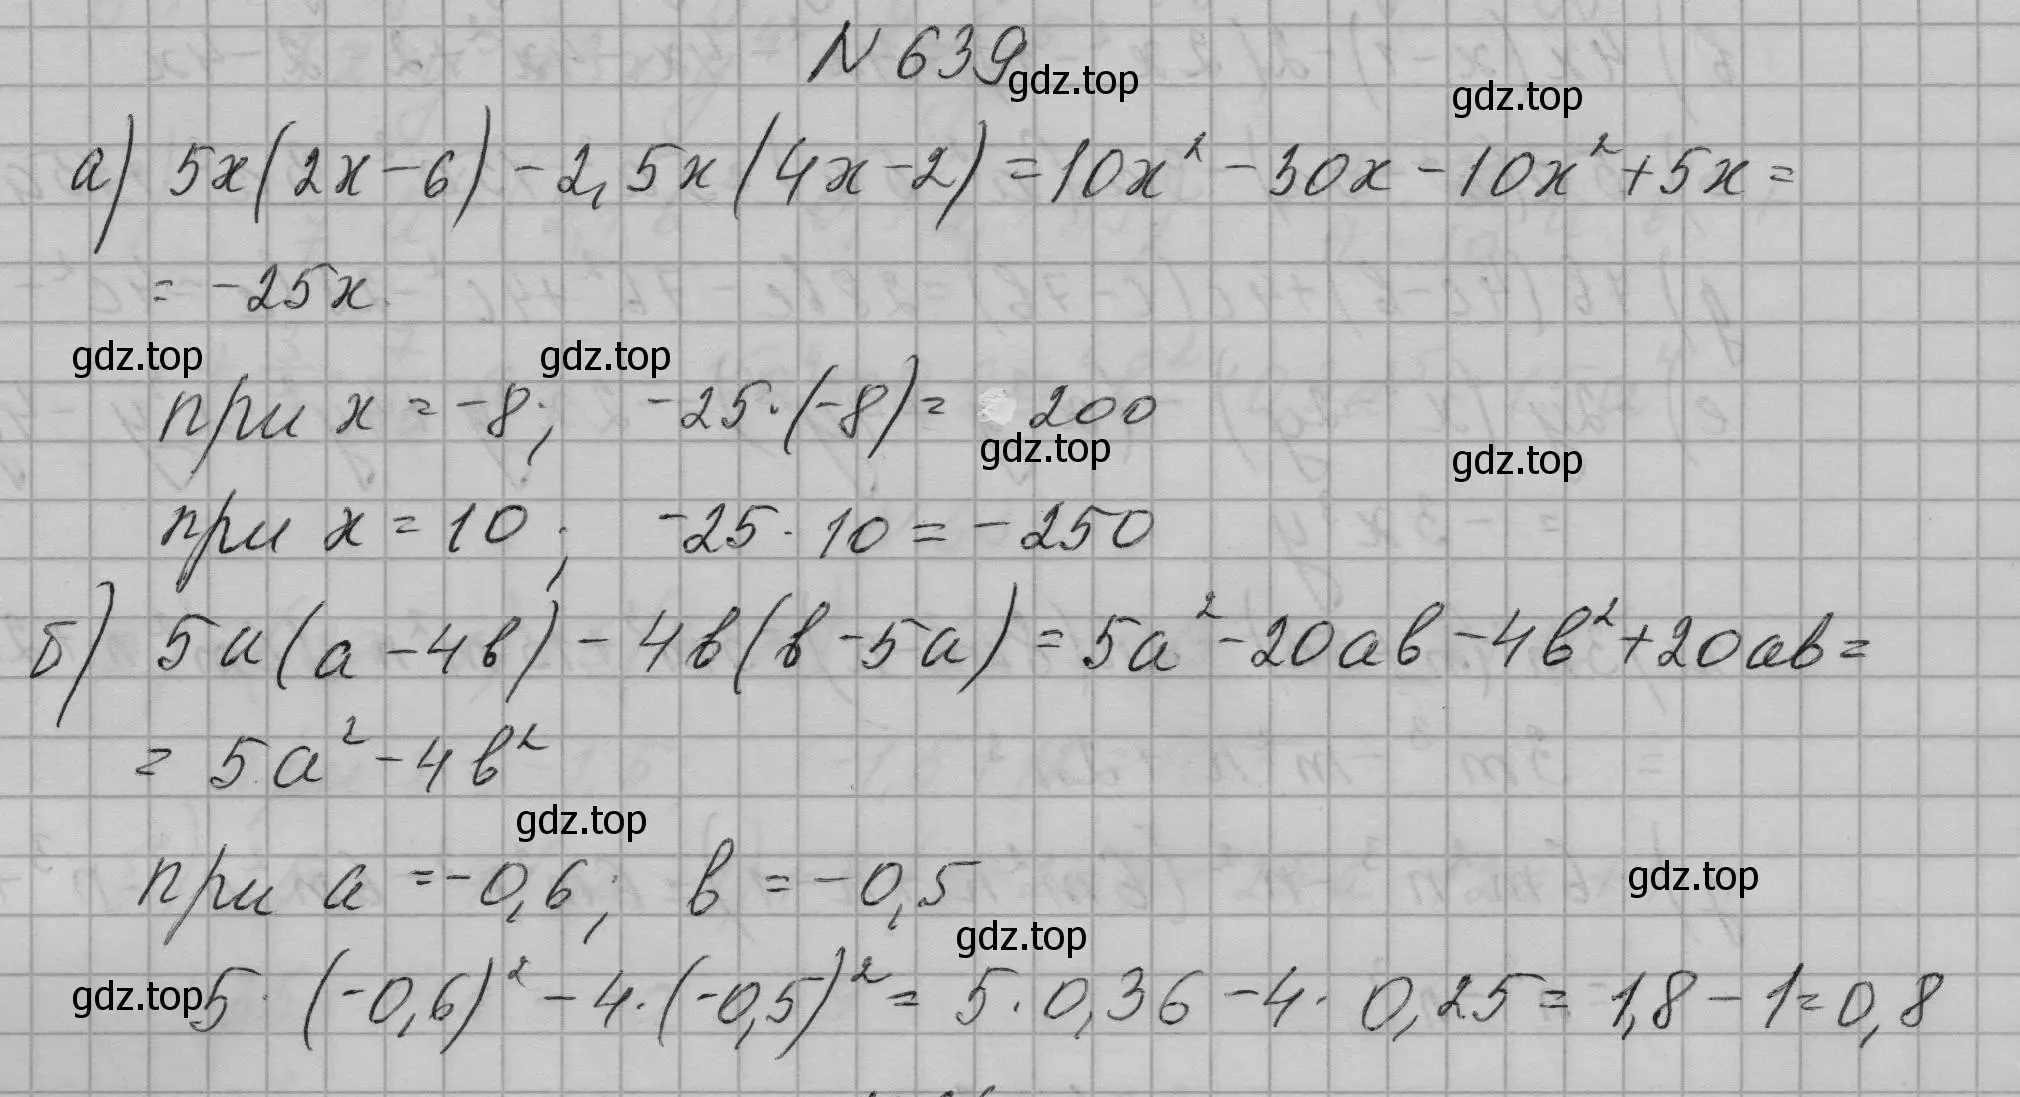 N 639
gdz.top
gdz.top
а) 5x(2x-6)-2,5x(4x-2)=10x²-30x-10x²+5x=
= -25x
gdz.top gdz.top
при x=-8; -25·(-8)= 200
gdz.top gdz.top
при x=10; -25·10=-250
б) 5a(a-4b)-4b(b-5a)=5a²-20ab-4b²+20ab=
= 5a²-4b²
gdz.top
при a=-0,6; b=-0,5
gdz.top
gdz.top
gdz.top
5·(-0,6)²-4·(-0,5)²=5·0,36-4·0,25=1,8-1=0,8